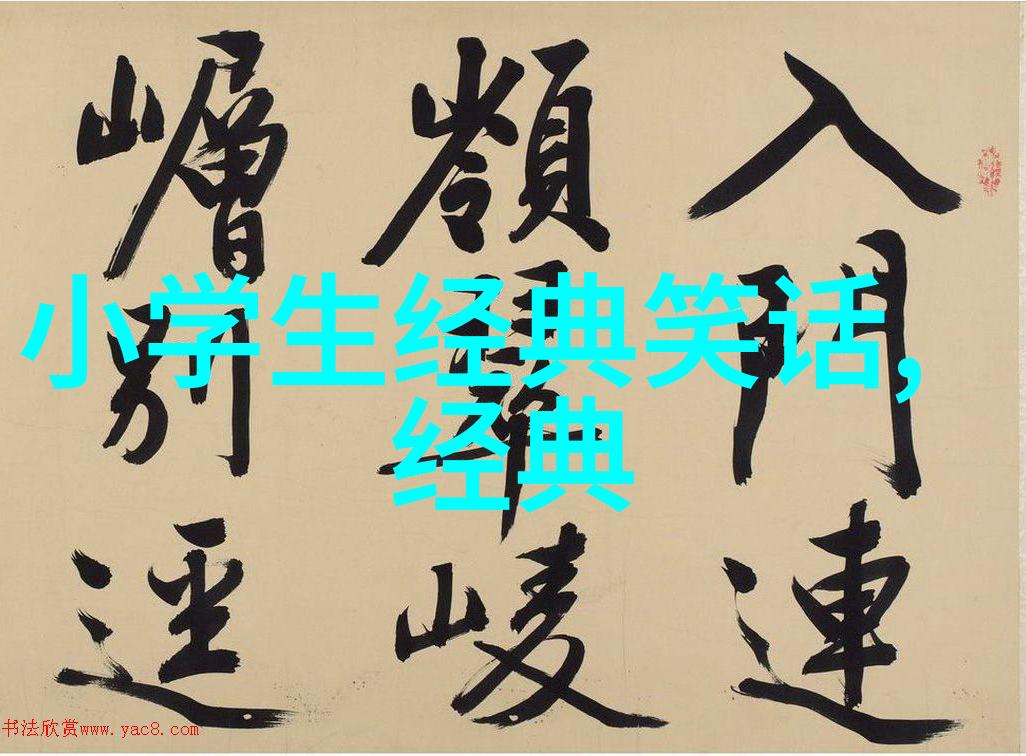 入門連
嶺崚
嶒別逕
小学生经典笑话,
经典
书法欣赏www.yac8.com